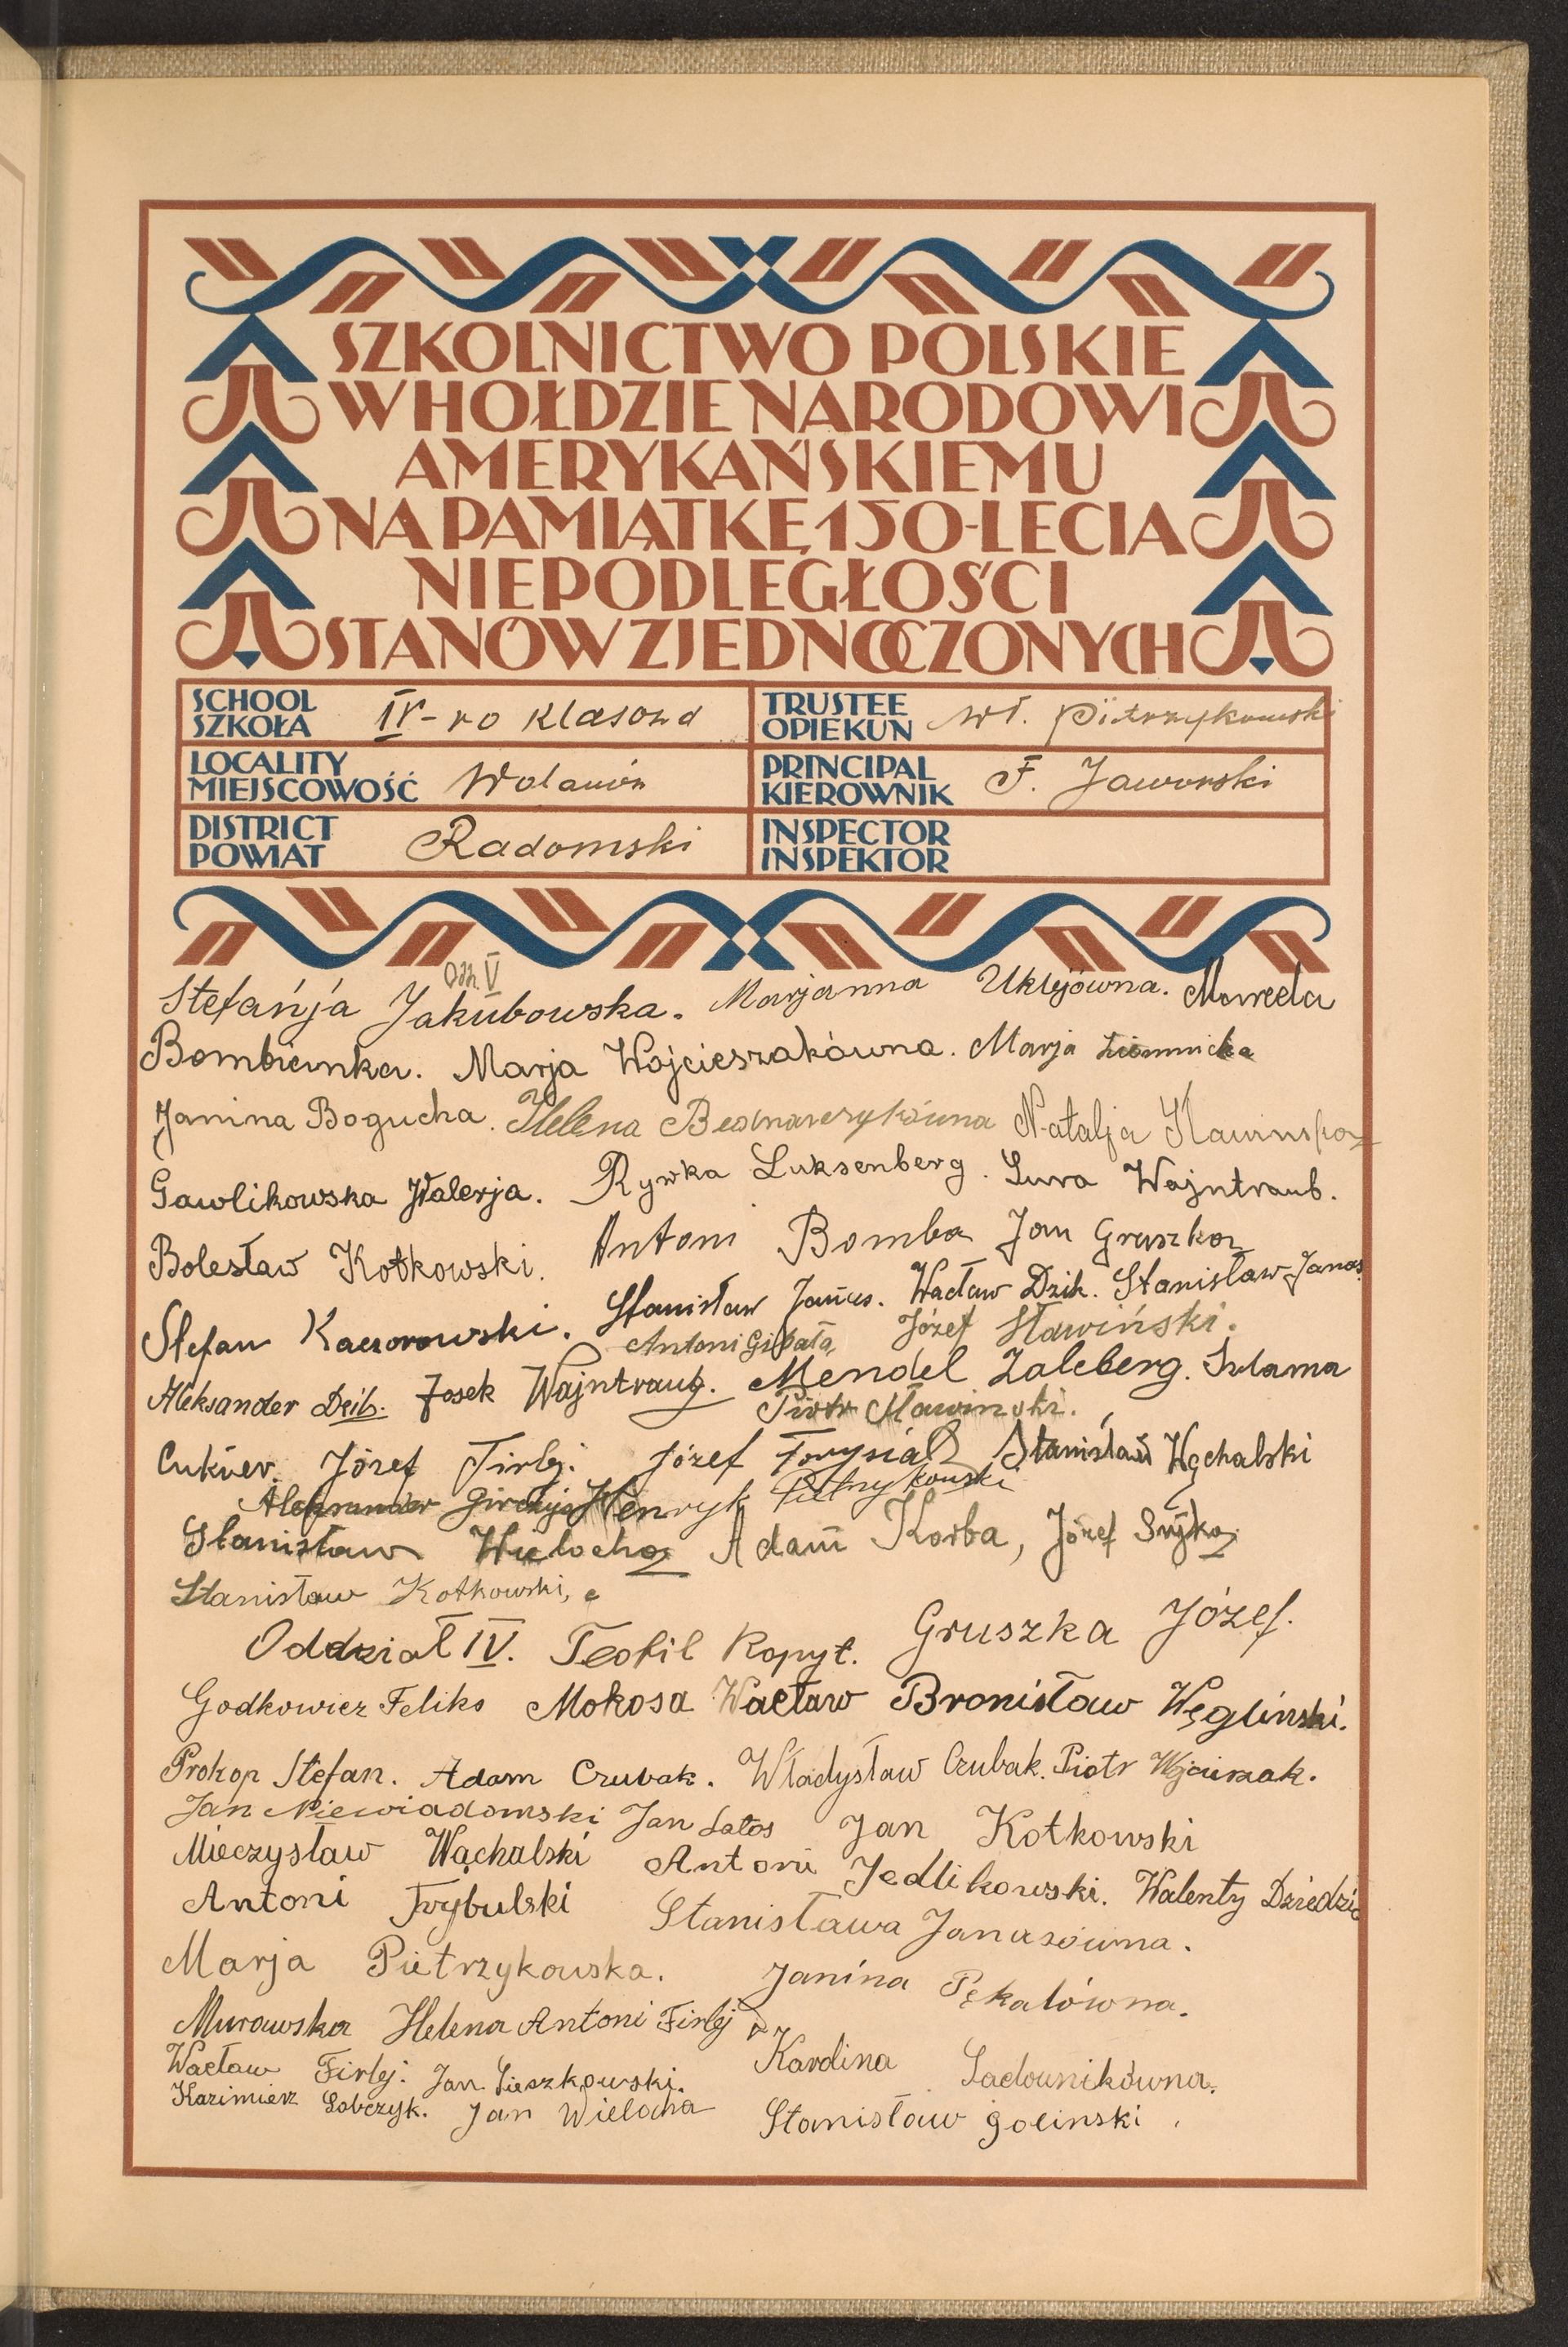 SZKOLNICTWO POLSKIE
W HOŁDZIE NARODOWI
AMERYKAŃSKIEMU
NA PAMIĄTKĘ 150-LECIA
NIEPODLEGŁOŚCI
STANÓW ZJEDNOCZONYCH
SCHOOL SZKOŁA IV-ro klasowa
TRUSTEE OPIEKUN Wł. Pietrzykowski
LOCALITY MIEJSCOWOŚĆ Wolanów
PRINCIPAL KIEROWNIK F. Jaworski
DISTRICT POWIAT Radomski
INSPECTOR INSPEKTOR
Odz. V
Stefańja Jakubowska. Marjanna Uklejówna.
Bombianka. Marja Wojcieszakówna. Marja
Janina Bogucha. Helena Bednarczykówna Natalja
Gawlikowska Walerja. Rywka Luksenberg. Sura Wajntraub.
Bolesław Kotkowski. Antoni Bomba Jan Gruszka
Stefan Kaczorowski. Stanisław Janus. Wacław Dzik. Stanisław Janas
Antoni Józef Sławiński.
Aleksander Dzik. Josek Wajntraub. Mendel Zaleberg. Szlama
Piotr Sławinski.
Cukier. Józef Firlej. Józef Forysiak Stanisław Wąchalski
Aleksander Henryk Pietrzykowski
Stanisław Wielocha Adam Korba, Józef
Stanisław Kotkowski,
Oddział IV. Teofil Kopyt. Gruszka Józef.
Godkowicz Feliks Mokosa Wacław Bronisław Węglinski.
Prokop Stefan. Adam Czubak. Władysław Czubak. Piotr Wojcieszak.
Jan Niewiadomski Jan Latos Jan Kotkowski
Mieczysław Wąchalski Antoni Jedlikowski. Walenty Dziedzic
Antoni Trybulski Stanisława Janasówna.
Marja Pietrzykowska. Janina Pękalówna.
Murawska Helena Antoni Firlej
Wacław Firlej. Jan Sieszkowski. Karolina Sadownikówna.
Kazimierz Sobczyk. Jan Wielocha Stanisław Golinski